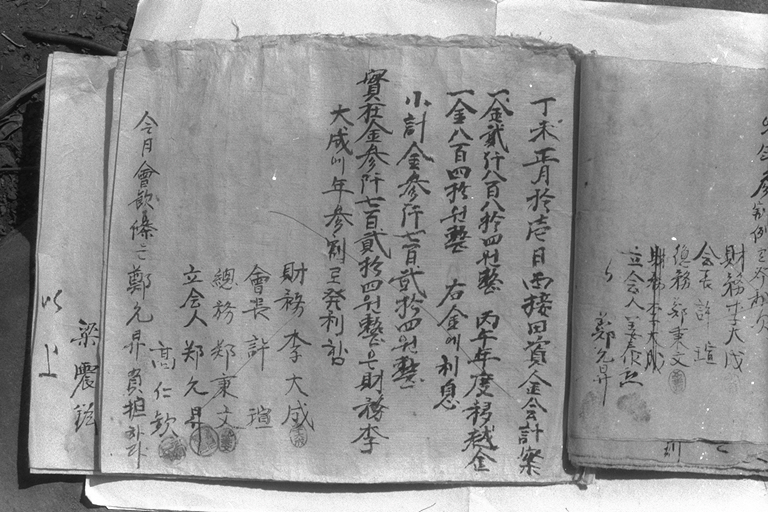 財務 李大成
会長 許瑄
總務 鄭東文
立会人
鄭允昇
丁未正月拾壱日 西接田資金会計案
一金貳仟八百八拾四원整 丙午年度移越金
一金八百四拾원整 右金에利息
小計金參仟七百貳拾四원整
實在金參仟七百貳拾四원整은財務李
大成이年參割로発利함
財務 李大成
會長 許瑄
總務 鄭東文
立会人 鄭允昇
高仁欽
今月會飮條는鄭允昇負担하다
梁震鉉
以上